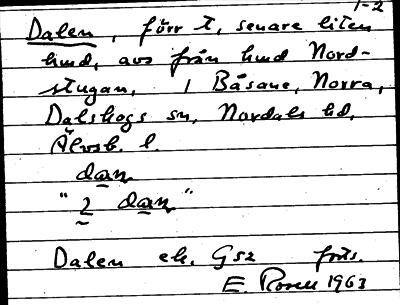 1-2
Dalen, förr t, senare liten
hmd, avs från hmd Nord-
stugan, 1 Båsane, Norra,
Dalskogs sn, Nordals hd,
Älvsb. l.
dan
"2 dan"
Dalen ek. G52 forts.
E. Rosell 1963